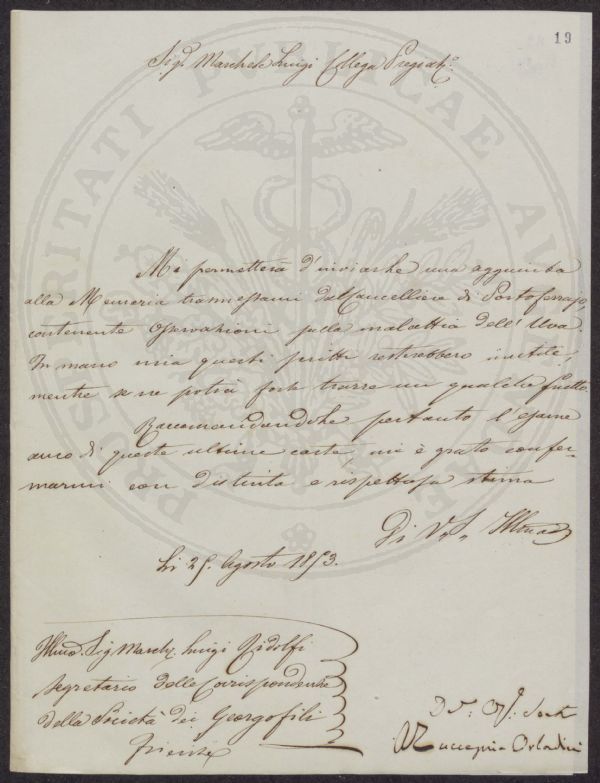 19
Sig.r Marchese Luigi Collega Pregiat.o
PROSPERITATI PUBLICAE AUGENDAE
Mi permetterà d'inviarle una aggiunta
alla Memoria trasmessami dal Cancelliere di Portoferrajo,
contenente Osservazioni sulla malattia dell'Uva.
In mano mia questi scritti resterebbero inutili,
mentre se ne potrà forse trarre un qualche frutto.
Raccomandandole pertanto l'esame
anco di queste ultime carte, mi è grato confer-
marmi con distinta e rispettosa stima
Di V. S. Illma
Li 25. Agosto 1853.
Illmo. Sig March. Luigi Ridolfi
Segretario delle Corrispondenze
della Società dei Georgofili
Firenze
Orlandini